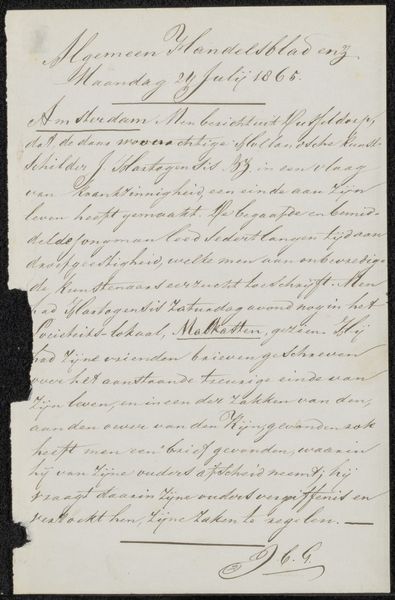 Algemeen Handelsblad enz
Maandag 24 Julij 1865.
Amsterdam. Men bericht uit Dusseldorp,
dat de daar woonachtige Hollandsche kunst-
schilder J. Hartogensis Jz, in een vlaag
van krankzinnigheid, een einde aan zijn
leven heeft gemaakt. De begaafde en bemid-
delde jongman leed sedert langen tijd aan
droefgeestigheid, welke men aan onbevredig
de kunstenaars eerzucht toeschrijft. Men
had Hartogensis Zaturdag avond nog in het
Societeits-lokaal, Malkasten, gezien. Hij
had zijne vrienden brieven geschreven
over het aanstaande treurige einde van
zijn leven, en in een der zakken van den,
aan den oever van den Rijn, gevonden rok
heeft men een brief gevonden, waarin
hij van zijne ouders afscheid neemt; hij
vraagt daarin zijne ouders vergiffenis en
verzoekt hen, zijne zaken te regelen. —
J. C. G.